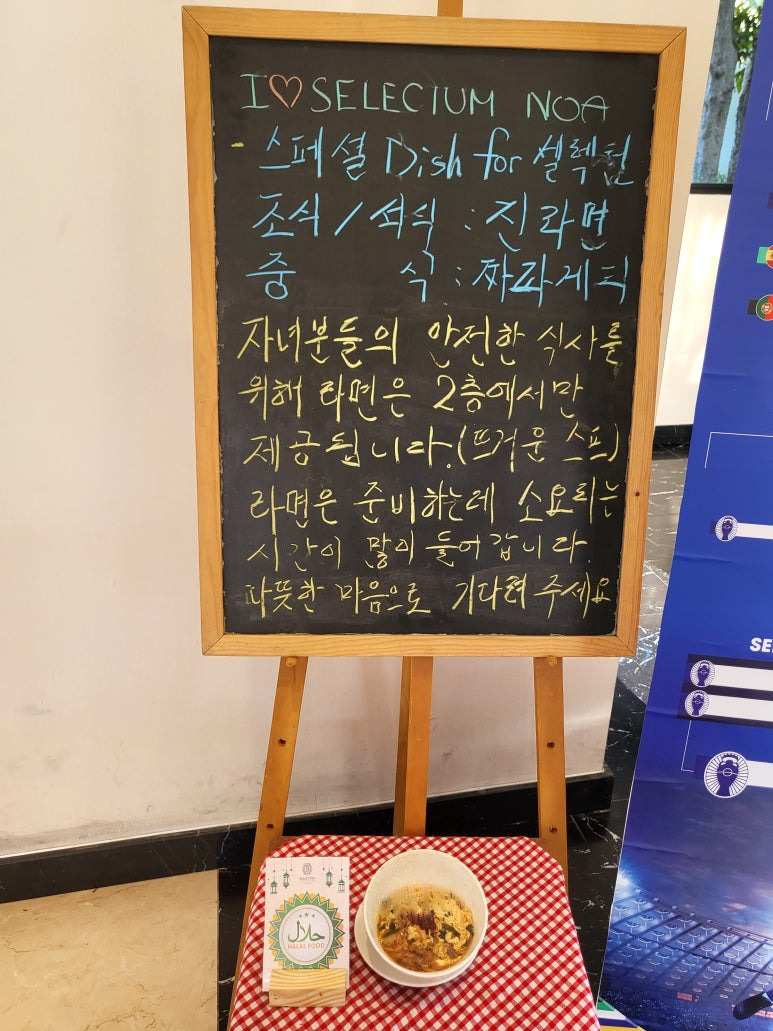 I♡SELECTUM NOA
- 스페셜 Dish for 셀렉텀
조식 / 석식 : 진라면
중 식 : 짜파게티
자녀분들의 안전한 식사를
위해 라면은 2층에서만
제공됩니다.(뜨거운 스프)
라면은 준비하는데 소요되는
시간이 많이 들어갑니다.
따뜻한 마음으로 기다려 주세요
حلال
HALAL FOOD
SE